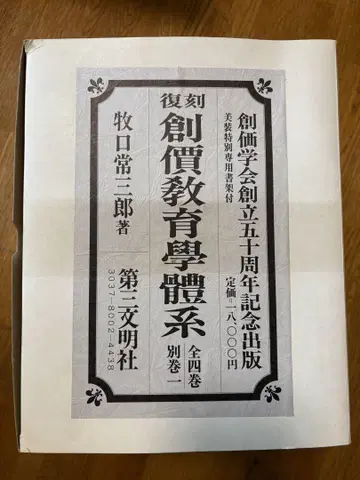 創価学会創立五十周年記念出版
美装特別専用書架付
定価=一八、〇〇〇円
復刻
創價教育學體系
全四巻
別巻一
牧口常三郎著
第三文明社
3037-8002-4438